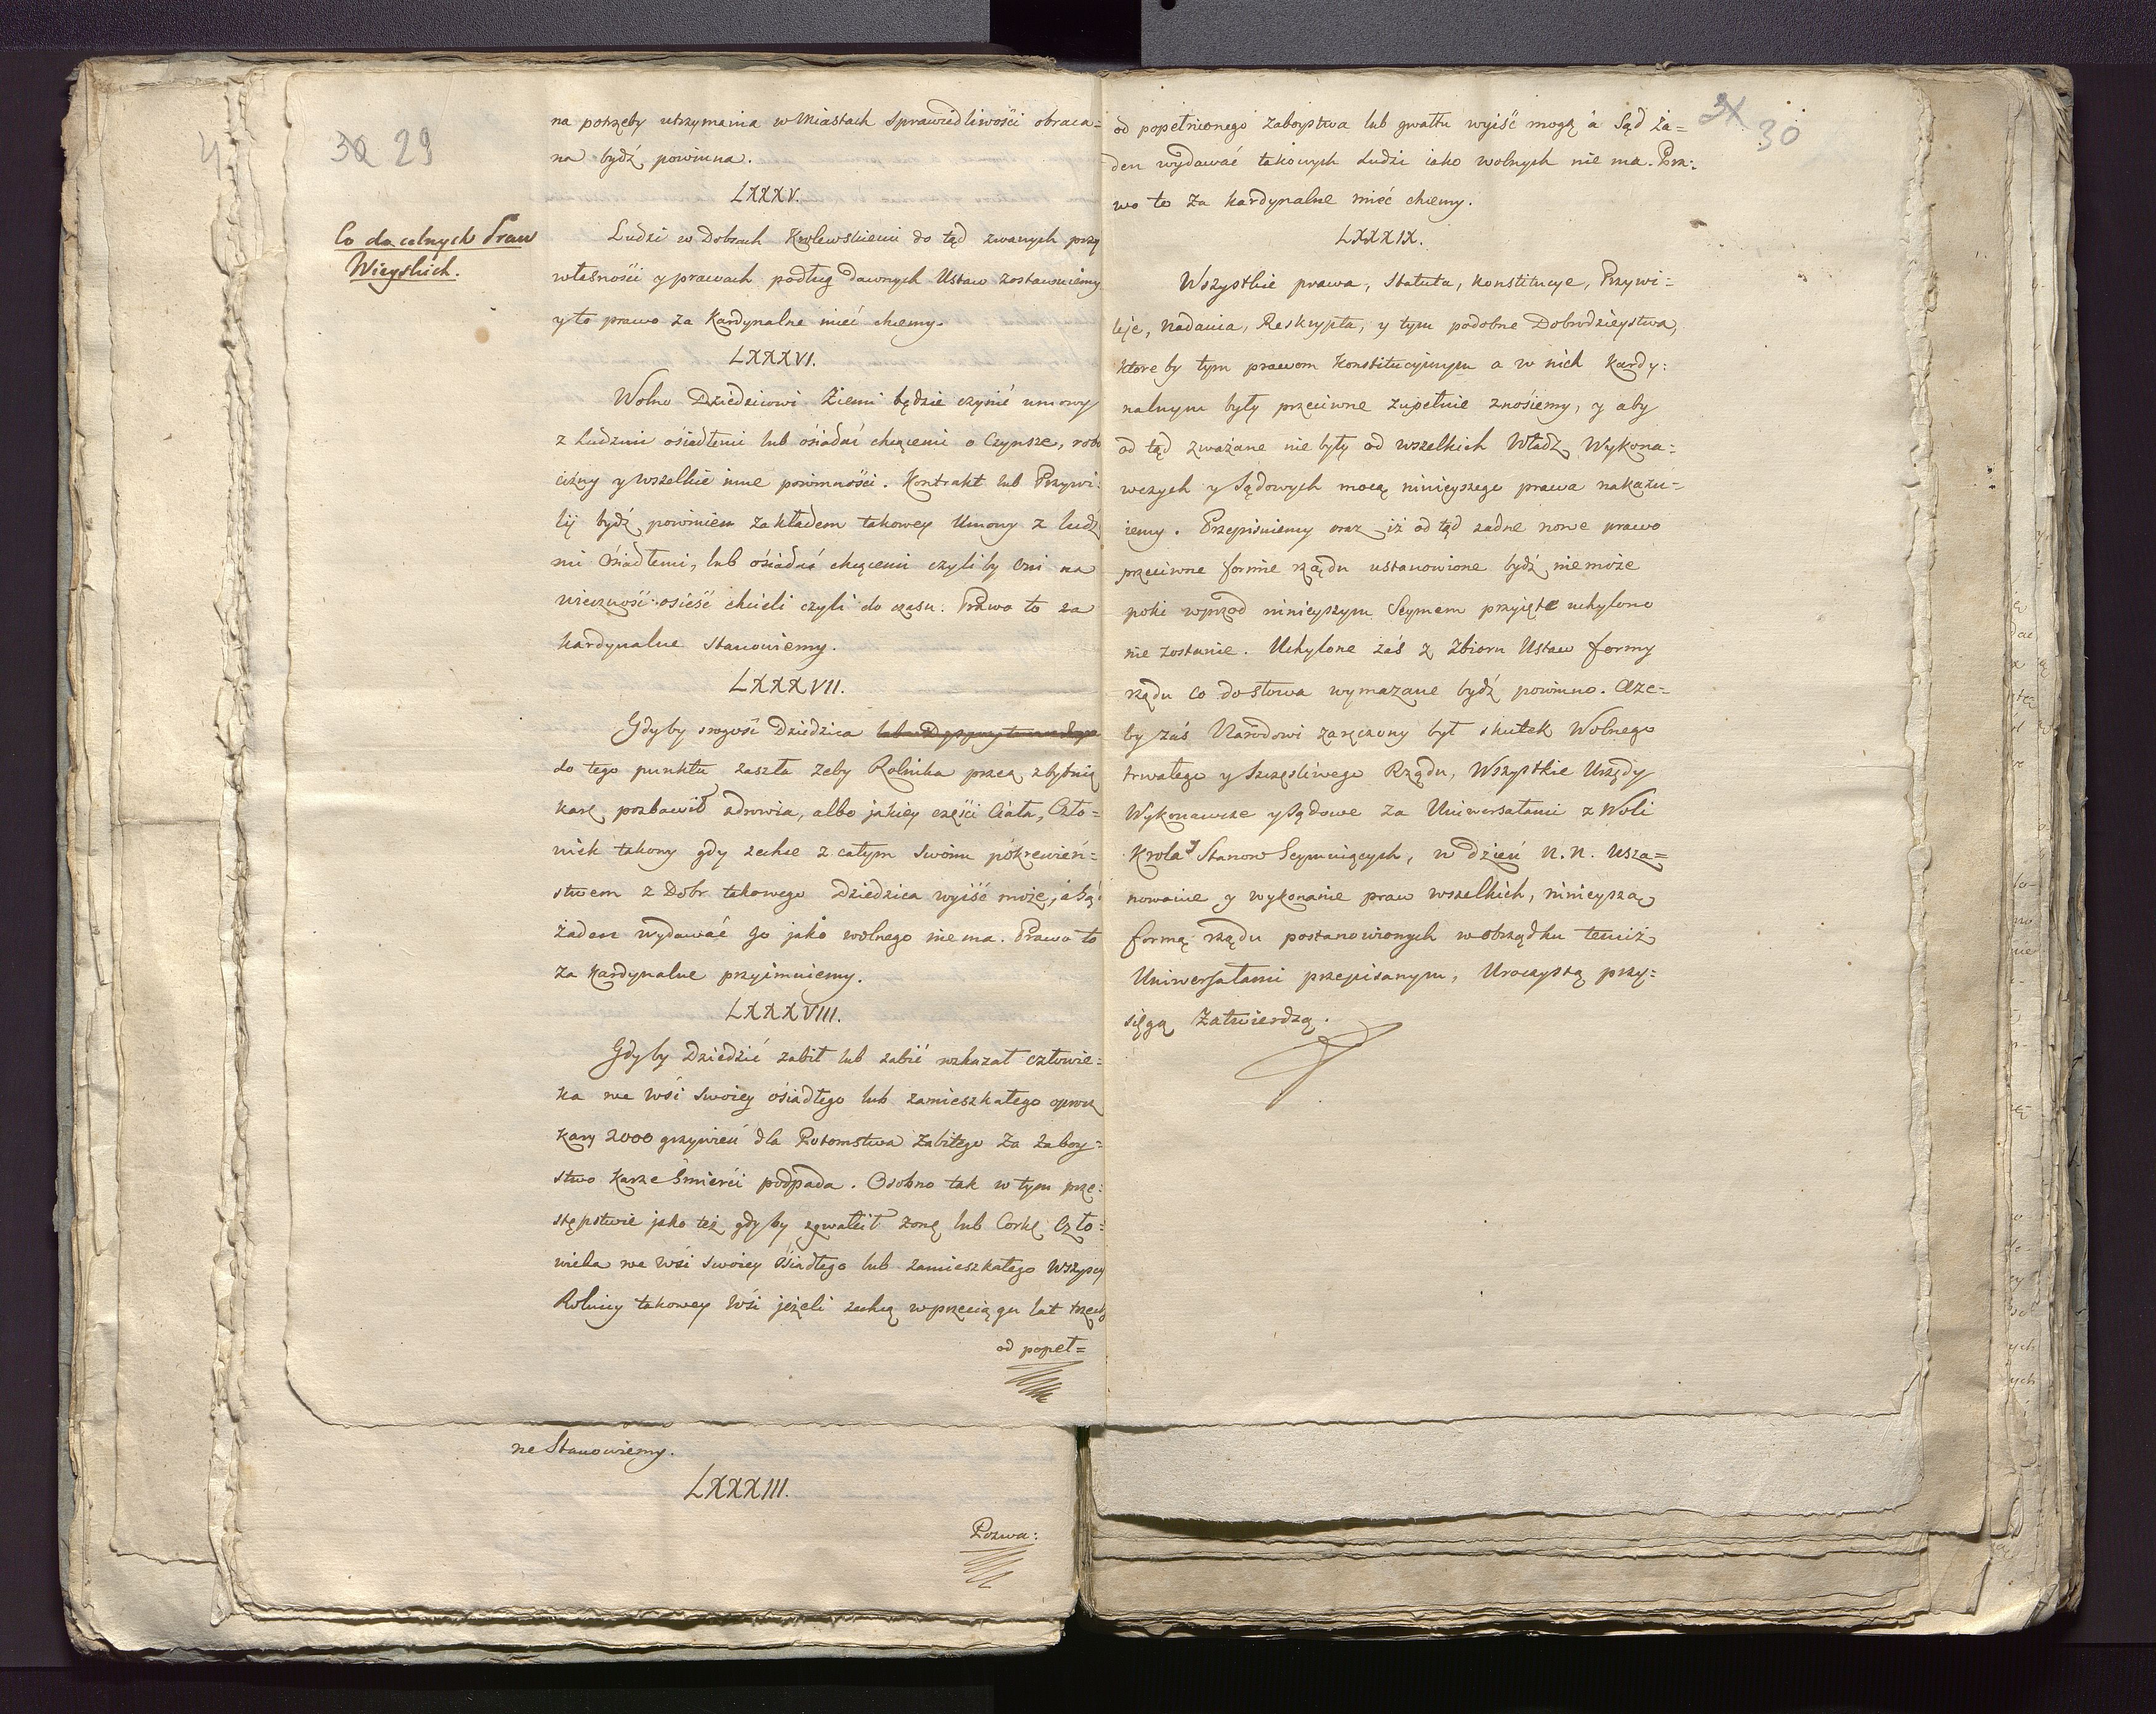 30 29
na potrzeby utrzymania w Miastach Sprawiedliwości obraca=
na bydź powinna.
LXXXV.
Co do celnych Praw
Wieyskich.
Ludzi w Dobrach Krolewskiemi do tąd zwanych przy
własności y prawach podług dawnych Ustaw zostawuiemy
y to prawo za Kardynalne mieć chcemy.
LXXXVI.
Wolno Dziedzicowi Ziemi będzie czynić umowy
z Ludzmi osiadłemi lub osiadać chcącemi o Czynsze, robo
cizny y wszelkie inne powinności. Kontrakt lub Przywi:
liy bydź powinien zakładem takowey Umowy z ludź
mi osiadłemi, lub osiadać chcącemi czyliby oni na
wieczność osieść chcieli czyli do czasu. Prawo to za
kardynalne stanowiemy.
LXXXVII.
Gdyby srogość Dziedzica
do tego punktu zaszła żeby Rolnika przez zbytnią
karę pozbawił zdrowia, albo jakiey części Ciała, Czło=
wiek takowy gdy zechce z całym swoim pokrewień=
stwem z Dobr takowego Dziedzica wyiść może, a Są
żaden wydawać go jako wolnego nie ma. Prawo to
za Kardynalne przyimuiemy.
LXXXVIII.
Gdyby Dziedzic zabił lub zabić wskazał człowie=
ka we Wsi swoiey osiadłego lub zamieszkałego oprocz
kary 2000 grzywien dla Potomstwa zabitego za zaboy=
stwo karze Smierci podpada. Osobno tak w tym prze:
stępstwie jako też gdyby zgwałcił żonę lub Corkę Czło=
wieka we wsi swoiey osiadłego lub zamieszkałego Wszyscy
Rolnicy takowey Wsi jeżeli zechcą w przeciągu lat trzech
od popeł=
ne Stanowiemy.
LXXXIII.
Pozwa:
31 30
od popełnionego zaboystwa lub gwałtu wyiść mogą a Sąd ża=
den wydawać takowych Ludzi iako wolnych nie ma. Pra:
wo to za kardynalne mieć chcemy.
LXXXIX.
Wszystkie prawa, Statuta, Konstitucye, Przywi=
leje, Nadania, Reskrypta, y tym podobne Dobrodzieystwa,
ktore by tym prawom Konstitucyinym a w nich Kardy:
nalnym były przeciwne zupełnie znosiemy, y aby
od tąd zważane nie były od wszelkich Władz Wykona=
wczych y Sądowych mocą ninieyszego prawa nakazu=
iemy. Przepisuiemy oraz iż od tąd żadne nowe prawo
przeciwne formie rządu ustanowione bydź nie może
poki wprzod ninieyszym Seymem przyięte uchylone
nie zostanie. Uchylone zaś z Zbioru Ustaw formy
rządu co do słowa wymazane bydź powinno. Aże=
by zaś Narodowi zaręczony był skutek Wolnego
trwałego y Szczęśliwego Rządu, Wszystkie Urzędy
Wykonawcze y Sądowe za Uniwersałami z Woli
Krola y Stanow Seymuiących, w dzień N.N. Usza=
nowanie y wykonanie praw wszelkich, ninieyszą
formą rządu postanowionych w obrządku temiż
Uniwersałami przepisanym, Uroczystą przy=
sięgą Zatwierdzą.